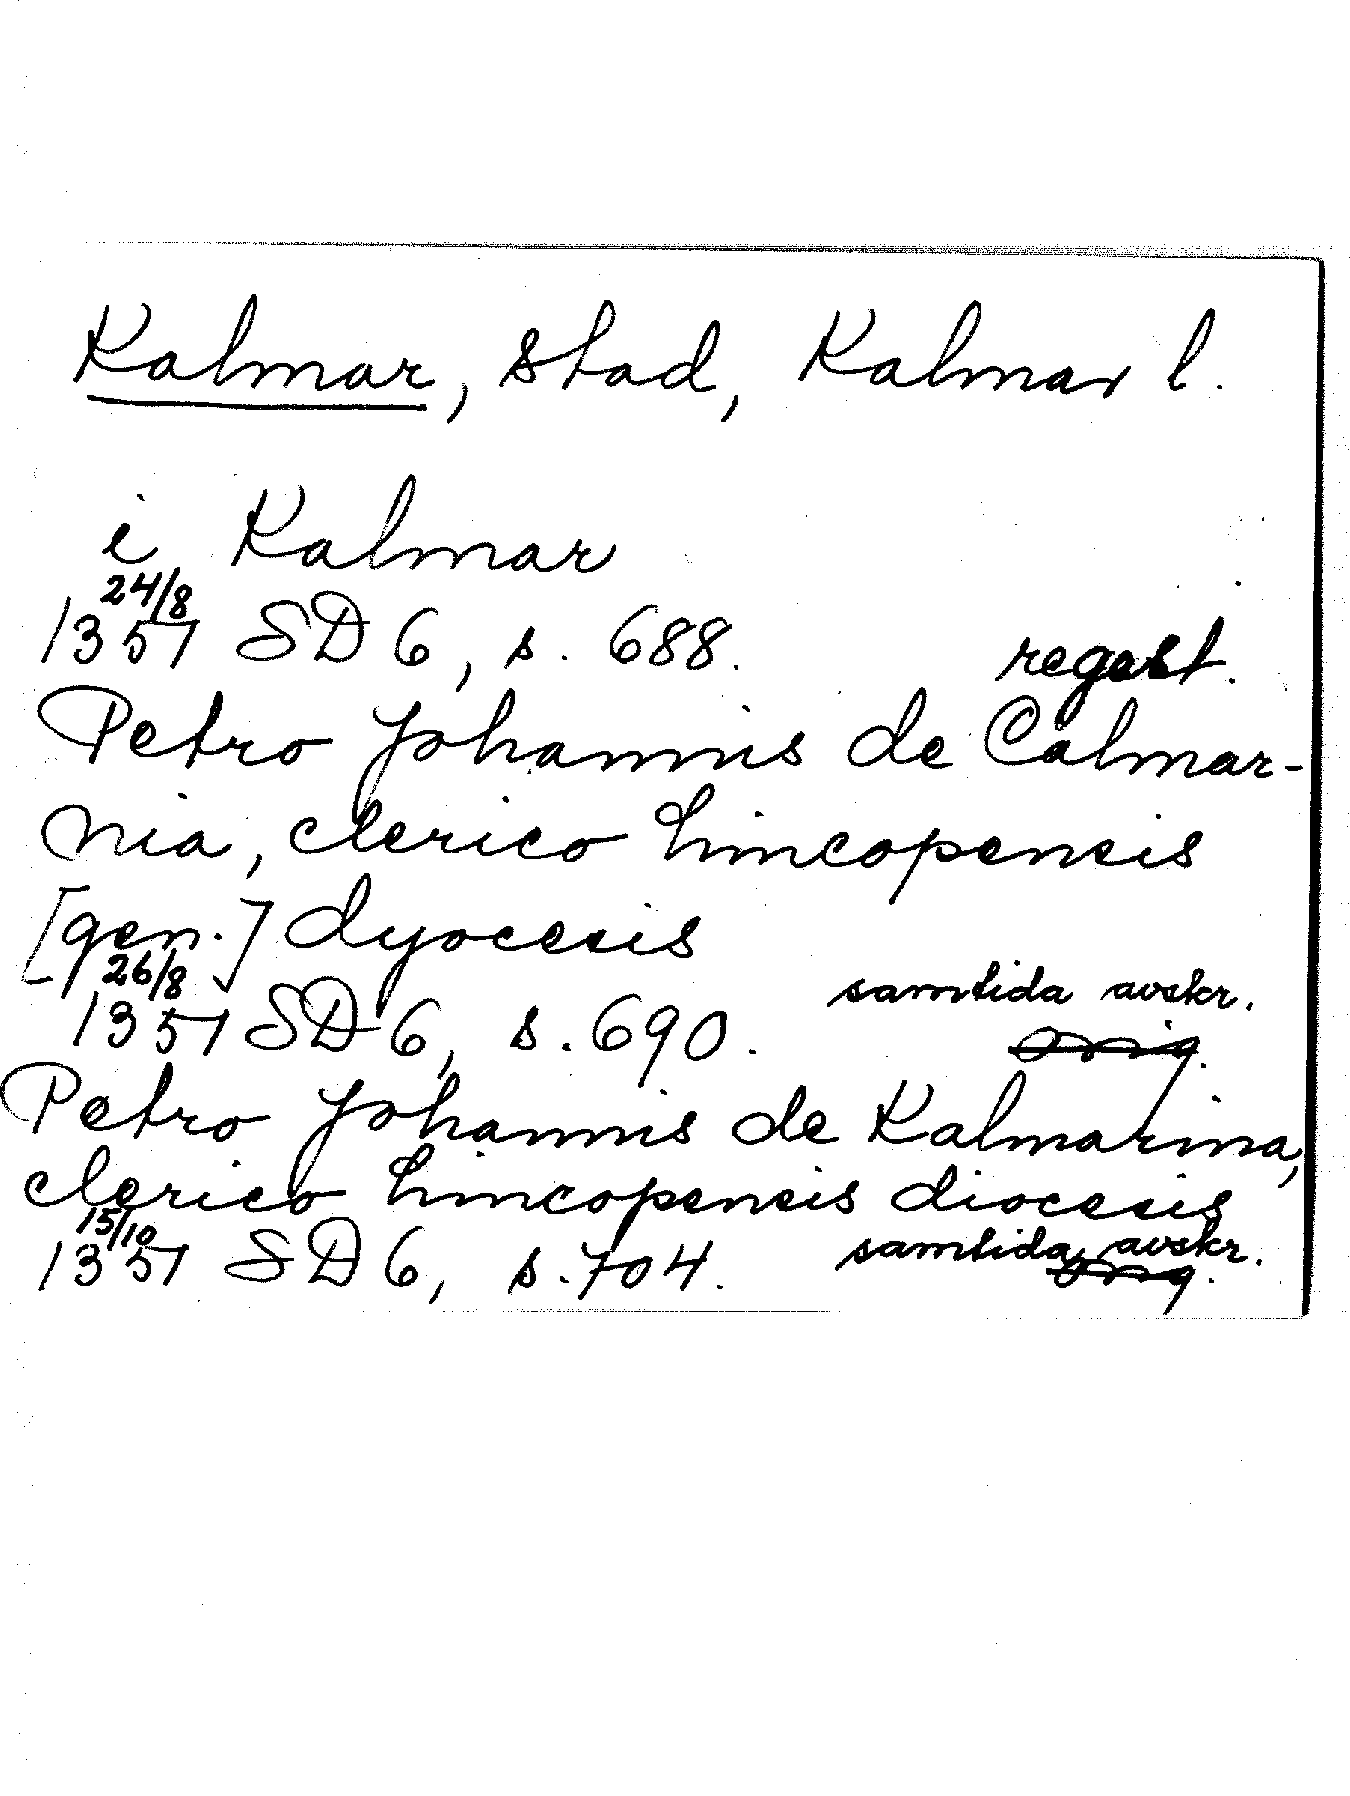 Kalmar, stad, Kalmar l.
i Kalmar
24/8
1357 SD 6, s. 688. regest.
Petro Johannis de Calmar-
nia, clerico lincopensis
[gen.] dyocesis
26/8 samtida avskr.
1357 SD 6, s. 690. orig.
Petro Johannis de Kalmarina,
clerico lincopensis diocesis
15/10 samtida avskr.
1357 SD 6, s. 704. orig.